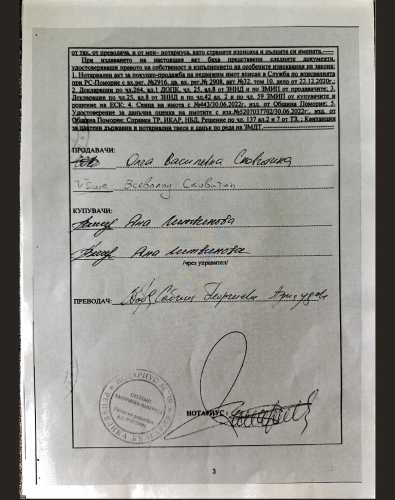 от тях, от преводача, и от мен- нотариуса, като страните изписаха и пълните си имената.-----
При издаването на настоящия акт бяха представени следните документи,
удостоверяващи правото на собственост и изпълнението на особените изисквания на закона:
1. Нотариален акт за покупко-продажба на недвижим имот вписан в Служба по вписванията
при РС-Поморие с вх.рег. №2916, дв. вх. рег.№ 2908, акт №32, том 10, дело от 22.12.2020г.,
2. Декларации по чл.264, ал.1 ДОПК, чл. 25, ал.8 от ЗННД и по ЗМИП от продавачите; 3.
Декларации по чл.25, ал.8 от ЗННД и по чл.42 ал. 2 и по чл. 59 ЗМИП от купувачите и
решение на ЕСК; 4. Скица на имота с №443/30.06.2022г., изд. от Община Поморие; 5.
Удостоверение за данъчна оценка на имотите с изх.№5207037702/30.06.2022г., изд. от
Община Поморие; Справки ТР, ИКАР, НБД, Решение по чл. 137 ал.2 и 7 от ТЗ, ; Квитанции
за платени държавна и нотариална такса и данък по реда на ЗМДТ.
ПРОДАВАЧИ:
Олга Василевна
Всеволод
КУПУВАЧИ:
Яна Литвинова
Яна Литвинова
/чрез управител/
ПРЕВОДАЧ:
Георгиева
НОТАРИУС :
3